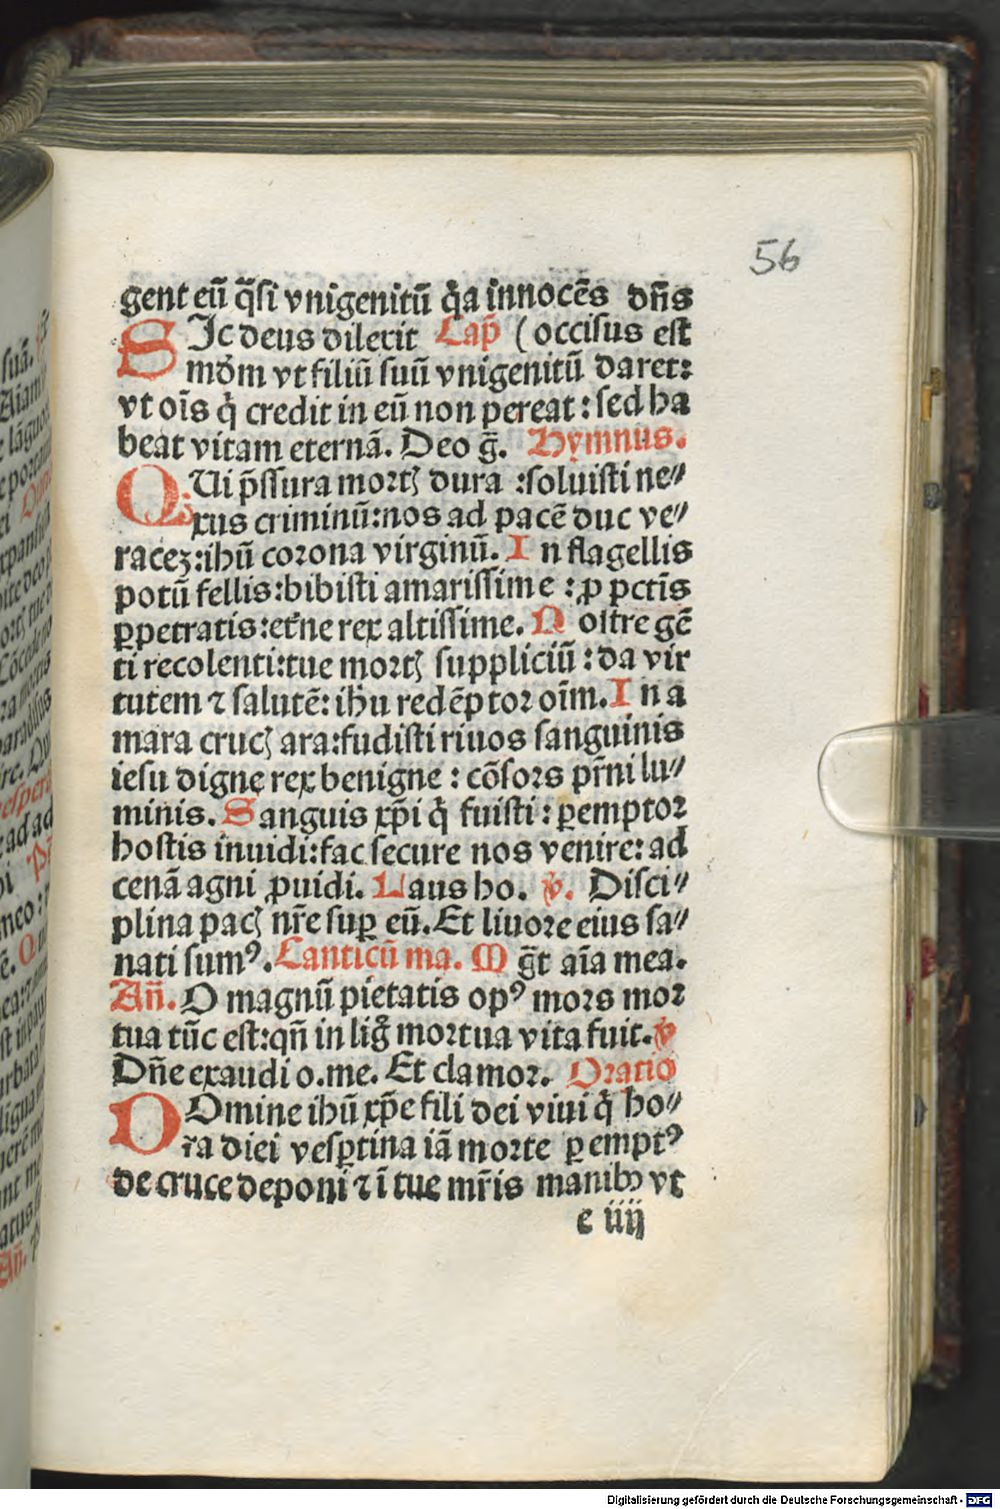 56
gent eū q̄si vnigenitū q̄a innocēs dn̄s
SIc deus dilexit Cap̄ (occisus est
mūdm vt filiū suū vnigenitū daret:
vt oīs q̇ credit in eū non pereat: sed ha
beat vitam eternā. Deo ḡ. Hymnus.
QUi p̄ssura mortꝭ dura :soluisti ne⸗
xus criminū:nos ad pacē duc ve⸗
racez:ihū corona virginū. In flagellis
potū fellis:bibisti amarissime :ꝓ pctīs
ꝑpetratis:et̄ne rex altissime. Nostre gē
ti recolenti:tue mortꝭ suppliciū :da vir
tutem ⁊ salutē: ihu redēptor oīm. In a
mara crucꝭ ara:fudisti riuos sanguinis
iesu digne rex benigne : cōsors pr̄ni lu⸗
minis. Sanguis xp̄i q̇ fuisti : ꝑemptor
hostis inuidi:fac secure nos venire: ad
cenā agni ꝓuidi. Laus ho. ℣. Disci⸗
plina pacꝭ nr̄e suꝑ eū. Et liuore eius sa⸗
nati sumꝰ. Canticū ma. M ḡt aīa mea.
An̄. O magnū pietatis opꝰ mors mor
tua tūc est:qn̄ in lig̊ mortua vita fuit. ℣
Dn̄e exaudi o.me. Et clamor. Oratio
DOmine ihū xp̄e fili dei viui q̇ ho⸗
ra diei vesꝑtina iā morte ꝑemptꝰ
de cruce deponi ⁊ ī tue mr̄is manibꝫ vt
e iiij
Digitalisierung gefördert durch die Deutsche Forschungsgemeinschaft - DFG